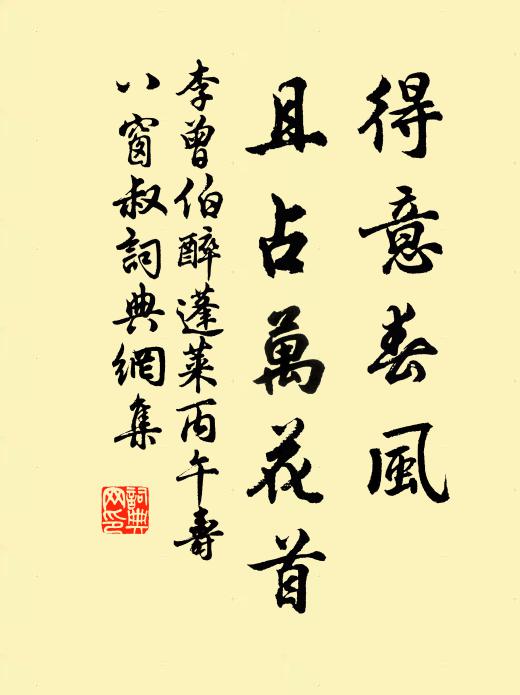 得意春風
且占萬花首
李曾伯醉蓬萊丙午壽
八窗叔詞典網集
詞典
网印